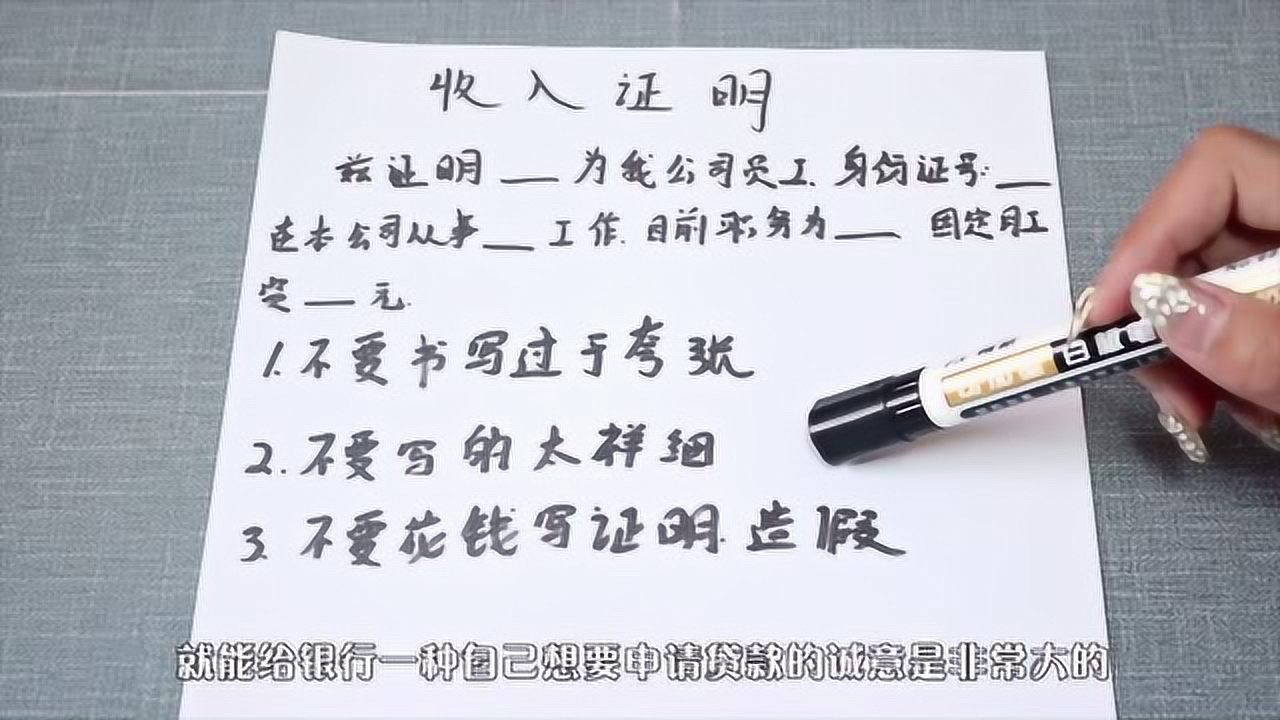 收入证明
兹证明___为我公司员工.身份证号:___
在本公司从事___工作.目前职务为___ 固定月工
定___元.
1.不要书写过于夸张
2.不要写的太样细
3.不要花钱写证明.造假
就能给银行一种自己想要申请贷款的诚意是非常大的